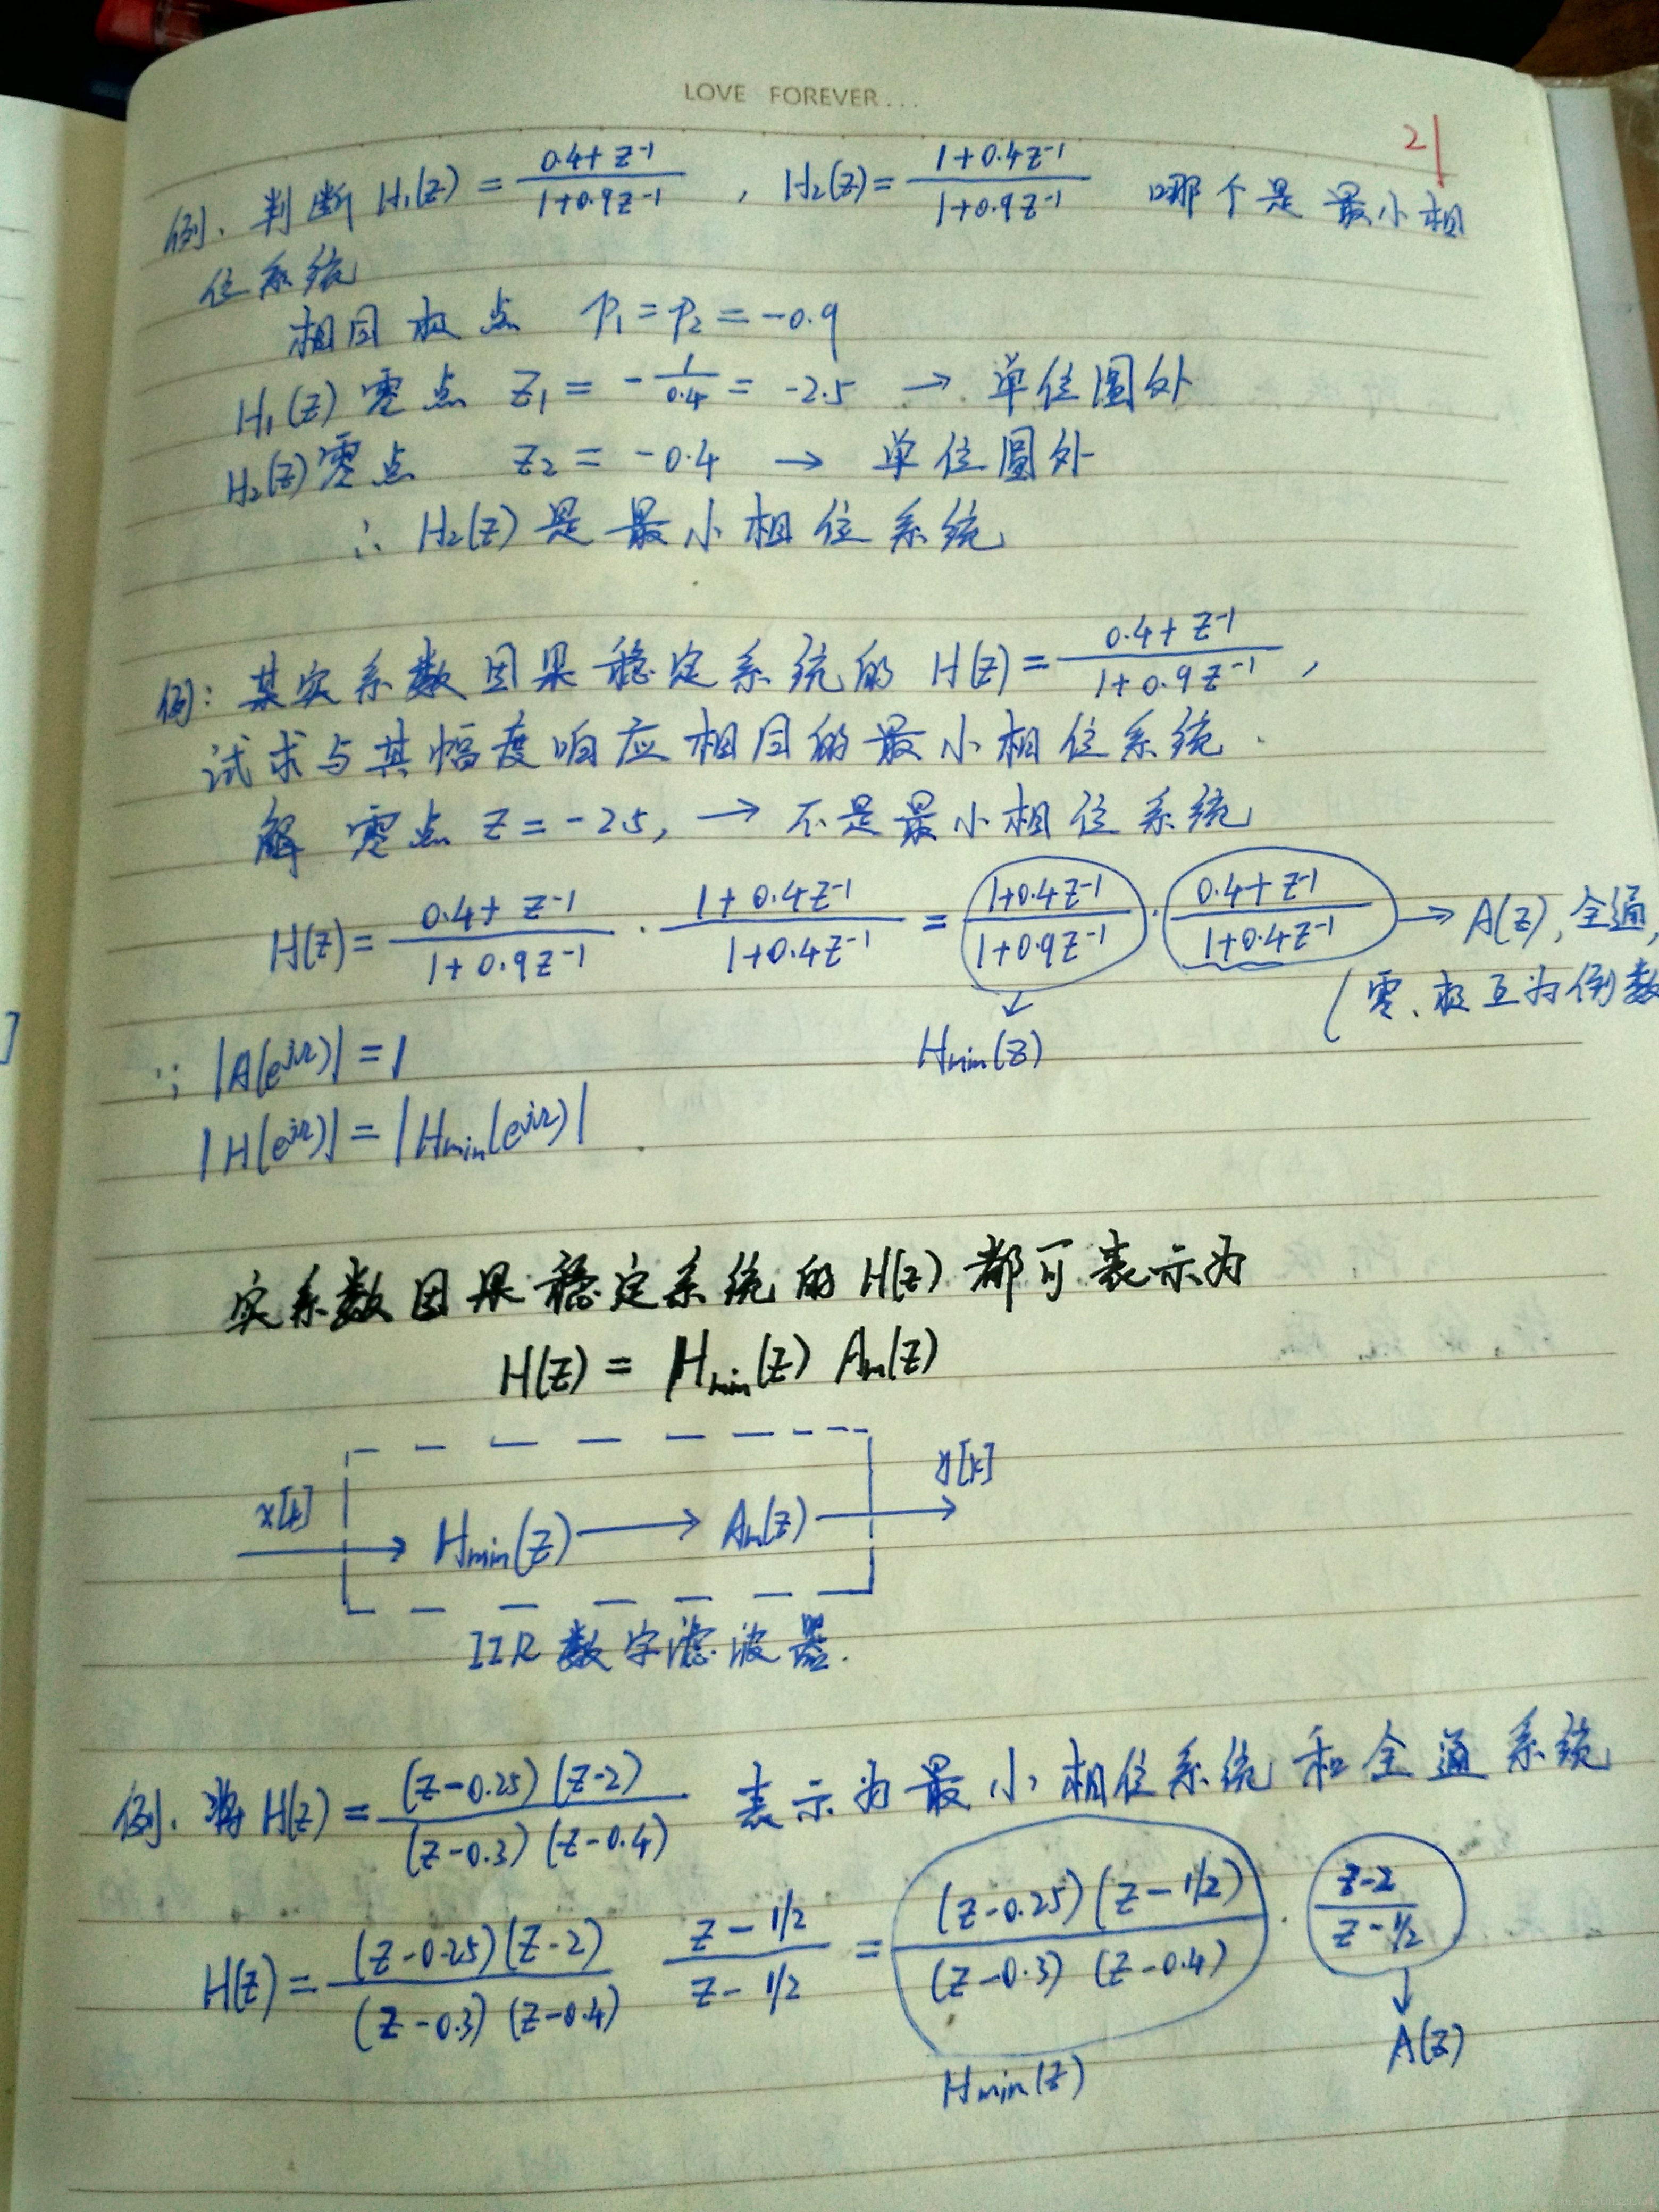 LOVE FOREVER...
21
例. 判断 H₁(z) = (0.4+z⁻¹)/(1+0.9z⁻¹) , H₂(z) = (1+0.4z⁻¹)/(1+0.9z⁻¹) 哪个是最小相
位系统
相同极点 p₁ = p₂ = -0.9
H₁(z) 零点 z₁ = -1/0.4 = -2.5 → 单位圆外
H₂(z) 零点 z₂ = -0.4 → 单位圆外
∴ H₂(z) 是最小相位系统
例: 某实系数因果稳定系统的 H(z) = (0.4+z⁻¹)/(1+0.9z⁻¹) ,
试求与其幅度响应相同的最小相位系统.
解 零点 z = -2.5, → 不是最小相位系统
H(z) = (0.4+z⁻¹)/(1+0.9z⁻¹) · (1+0.4z⁻¹)/(1+0.4z⁻¹) = (1+0.4z⁻¹)/(1+0.9z⁻¹) · (0.4+z⁻¹)/(1+0.4z⁻¹) → A(z), 全通,
(零、极互为倒数
Hmin(z)
∵ |A(e^jΩ)| = 1
|H(e^jΩ)| = |Hmin(e^jΩ)|
实系数因果稳定系统的 H(z) 都可表示为
H(z) = Hmin(z) Am(z)
x[k] → Hmin(z) → Am(z) → y[k]
IIR 数字滤波器.
例. 将 H(z) = (z-0.25)(z-2)/(z-0.3)(z-0.4) 表示为最小相位系统和全通系统
H(z) = (z-0.25)(z-2)/(z-0.3)(z-0.4) (z-1/2)/(z-1/2) = (z-0.25)(z-1/2)/(z-0.3)(z-0.4) · (z-2)/(z-1/2)
Hmin(z)
A(z)